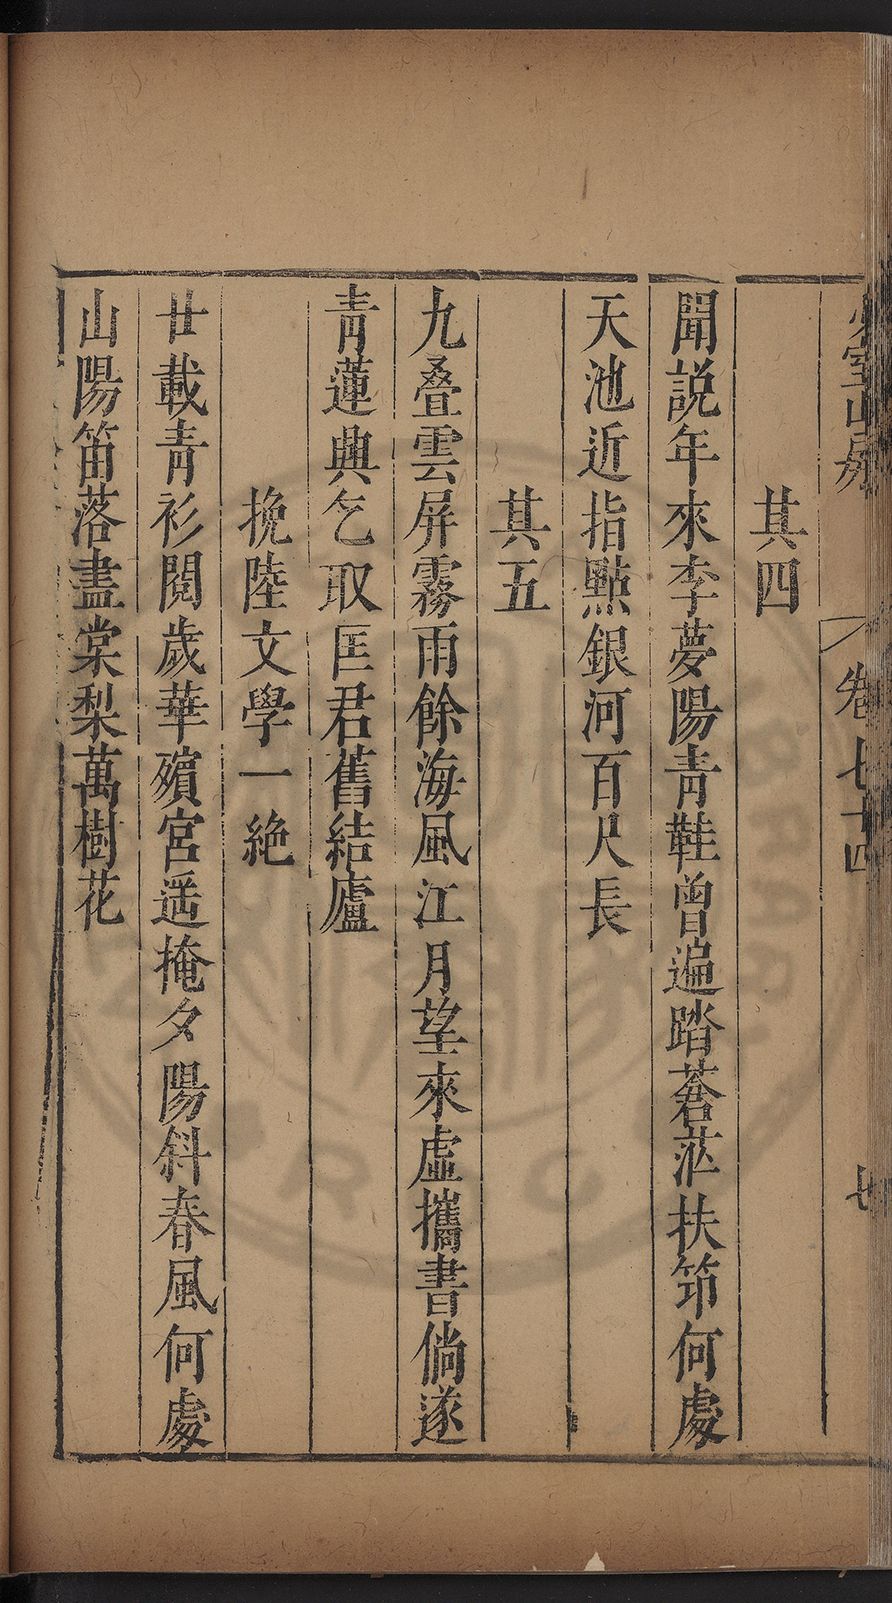 少室山房 卷七十四 七
其四
聞說年來李夢陽青鞋曾遍踏蒼茫扶筇何處
天池近指點銀河百尺長
其五
九叠雲屏霧雨餘海風江月望來虛攜書倘遂
青蓮興乞取匡君舊結廬
挽陸文學一絶
廿載青衫閱歲華殯宮遥掩夕陽斜春風何處
山陽笛落盡棠梨萬樹花